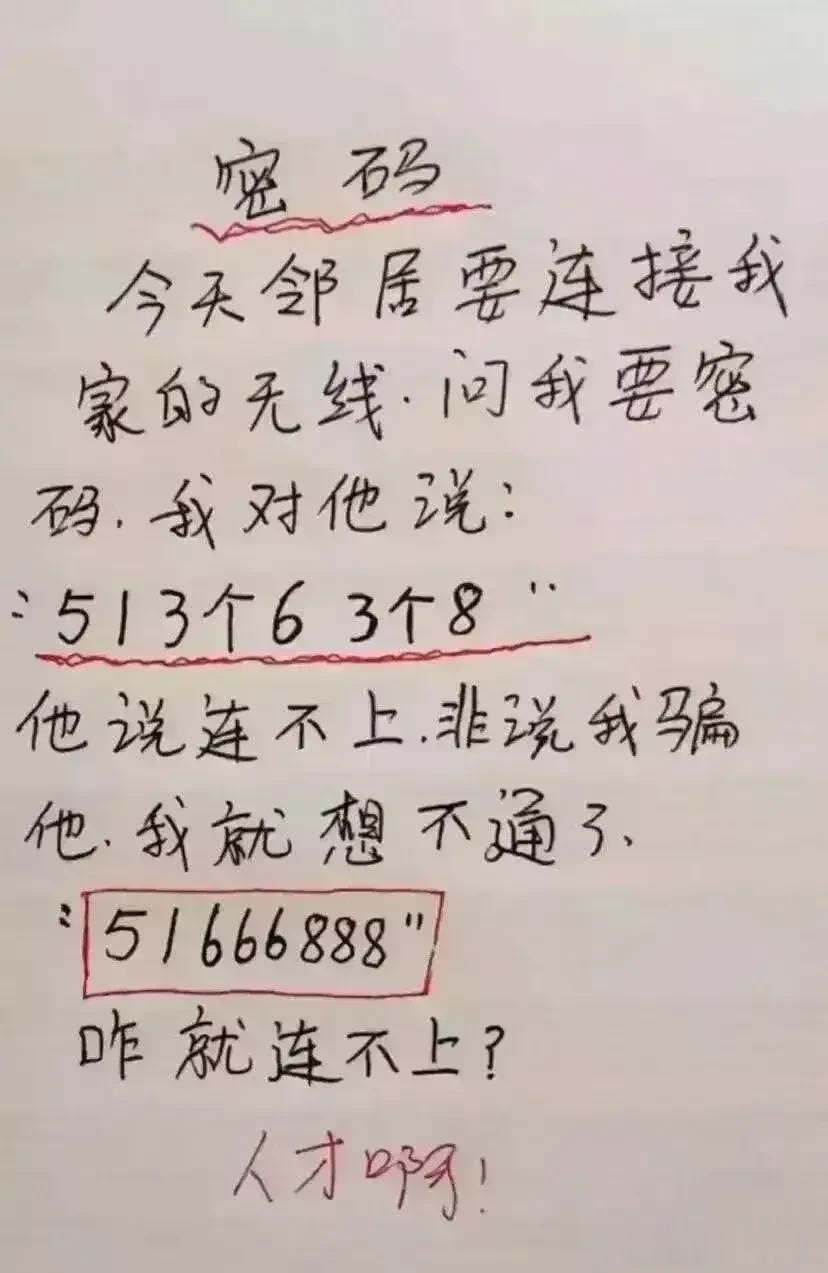 密码
今天邻居要连接我
家的无线.问我要密
码.我对他说:
"513个6 3个8"
他说连不上.非说我骗
他.我就想不通了、
"51666888"
咋就连不上?
人才啊!